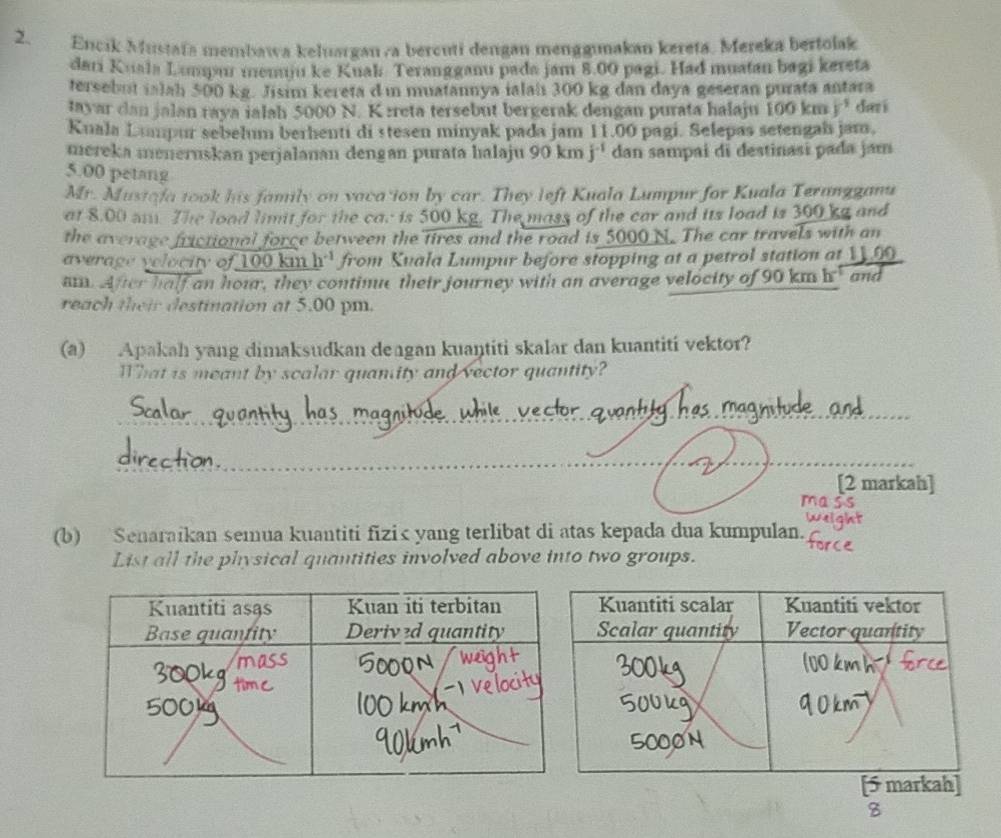 2. Encik Mustafa membawa keluargan a bercuti dengan menggunakan kereta. Mereka bertolak
dari Kuala Lumpur menuju ke Kuala Terangganu pada jam 8.00 pagi. Had muatan bagi kereta
tersebut ialah 500 kg. Jisim kereta d n muatannya ialah 300 kg dan daya geseran purata antara
tayar dan jalan raya ialah 5000 N. Kereta tersebut bergerak dengan purata halaju 100 km j⁻¹ dari
Kuala Lumpur sebelum berhenti di stesen minyak pada jam 11.00 pagi. Selepas setengah jam,
mereka meneruskan perjalanan dengan purata halaju 90 km j⁻¹ dan sampai di destinasi pada jam
5.00 petang
Mr. Mustafa took his family on vaca ion by car. They left Kuala Lumpur for Kuala Terangganu
at 8.00 am. The load limit for the car is 500 kg. The mass of the car and its load is 300 kg and
the average frictional force between the tires and the road is 5000 N. The car travels with an
average velocity of 100 km h⁻¹ from Kuala Lumpur before stopping at a petrol station at 11.00
am. After half an hour, they continue their journey with an average velocity of 90 km h⁻¹ and
reach their destination at 5.00 pm.
(a) Apakah yang dimaksudkan dengan kuantiti skalar dan kuantiti vektor?
What is meant by scalar quantity and vector quantity?
Scalar quantity has magnitude while vector quantity has magnitude and
direction.
2
[2 markah]
mass
weight
(b) Senaraikan semua kuantiti fizik yang terlibat di atas kepada dua kumpulan. force
List all the physical quantities involved above into two groups.
Kuantiti asas Kuan iti terbitan Kuantiti scalar Kuantiti vektor
Base quantity Derived quantity Scalar quantity Vector quantity
300kg mass 5000N weight 300kg 100 kmh⁻¹ force
time velocity
500kg 100 kmh⁻¹ 500kg 90km⁻¹
90kmh⁻¹ 5000N
[5 markah]
8